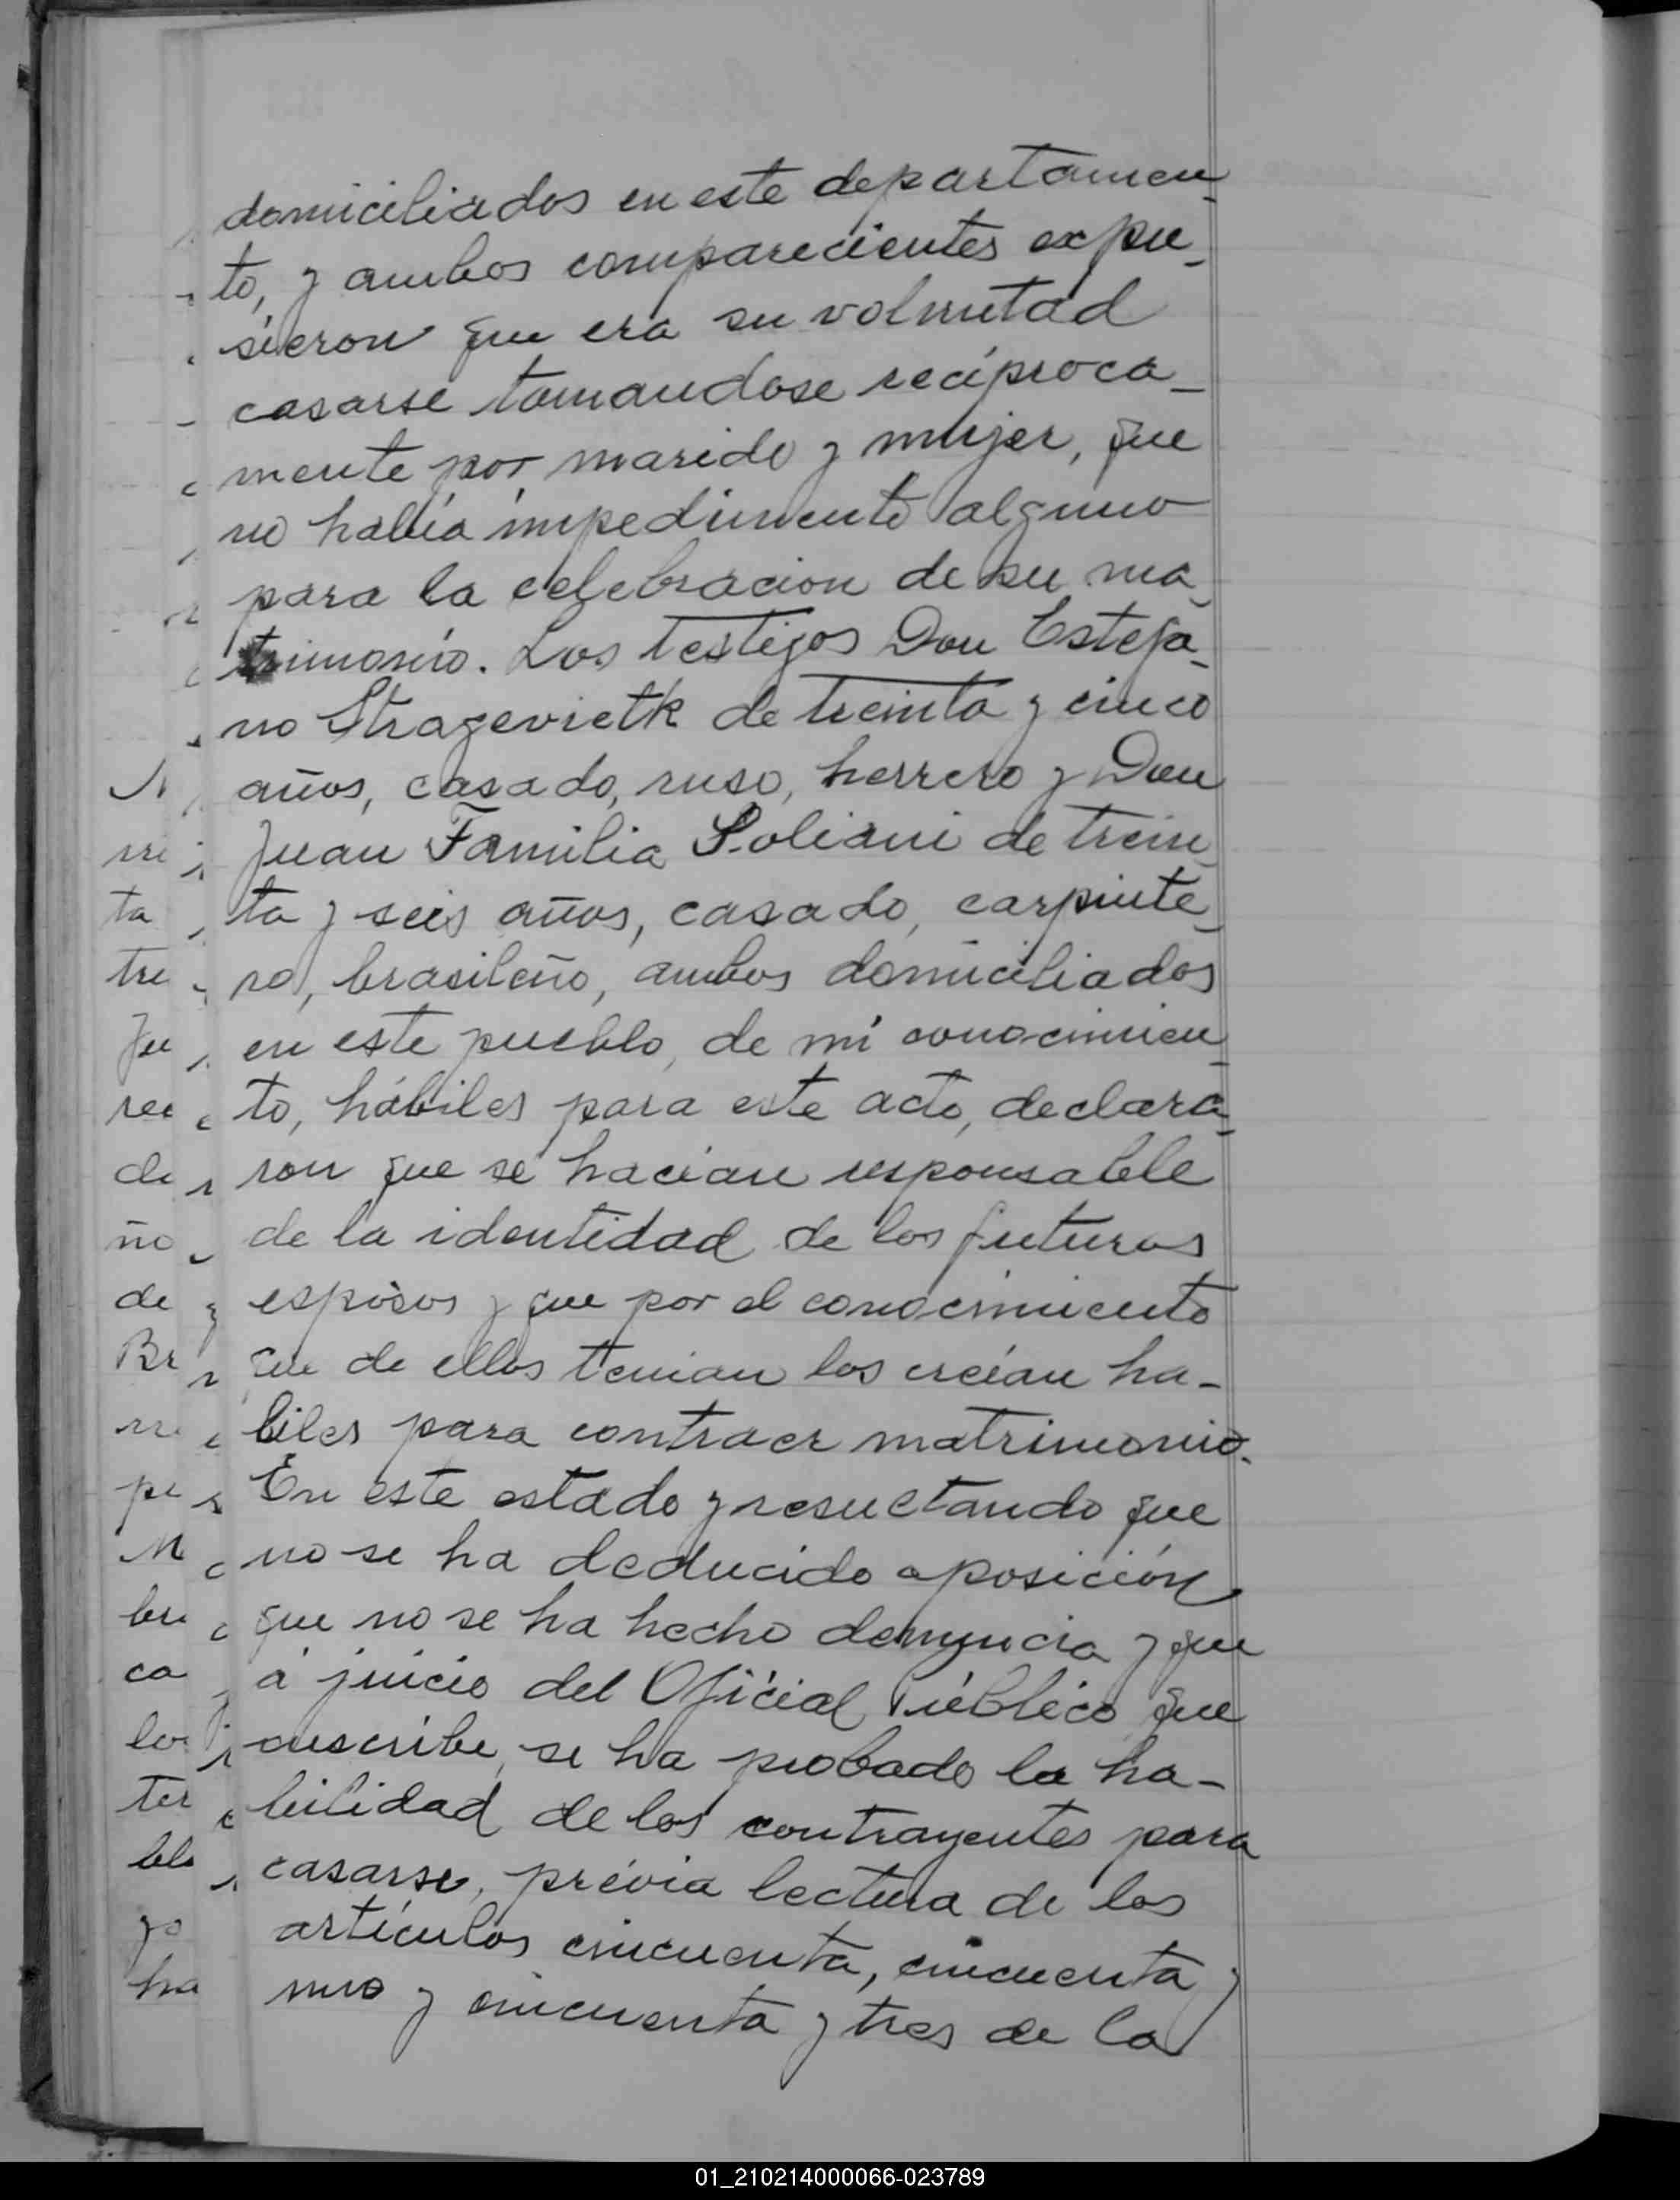 domiciliados en este departamen-
to, y ambos comparecientes expu-
sieron que era su voluntad
casarse tomandose recíproca-
mente por marido y mujer, que
no había impedimento alguno
para la celebracion de su ma-
trimonio. Los testigos Don Estefa-
no Stragevietk de treinta y cinco
años, casado, ruso, herrero y Don
Juan Familia Soliani de trein-
ta y seis años, casado, carpinte-
ro, brasileño, ambos domiciliados
en este pueblo, de mi conocimien-
to, hábiles para este acto, declara-
ron que se hacian responsable
de la identidad de los futuros
esposos y que por el conocimiento
que de ellos tenian los creían ha-
biles para contraer matrimonio.
En este estado y resultando que
no se ha deducido oposición
que no se ha hecho denuncia y que
á juicio del Oficial Público que
suscribe, se ha probado la ha-
bilidad de los contrayentes para
casarse, prévia lectura de los
artículos cincuenta, cincuenta y
uno y cincuenta y tres de la
01_210214000066-023789